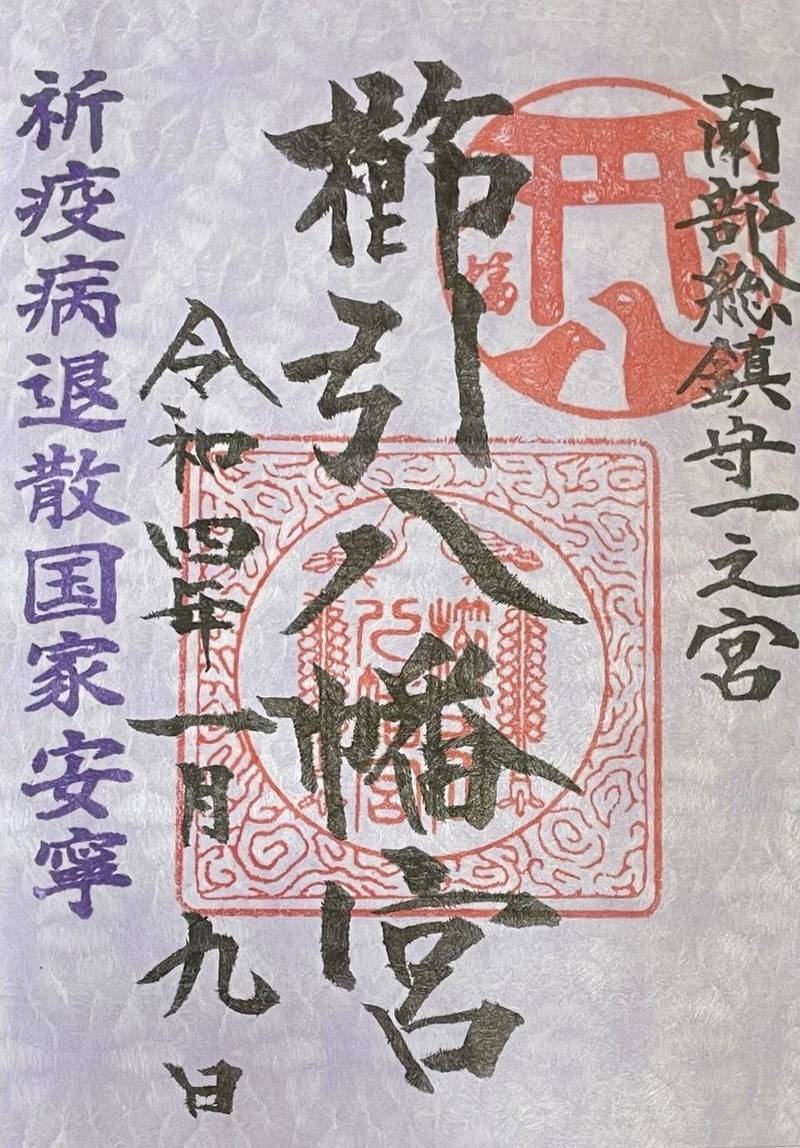 南部総鎮守一之宮
櫛引八幡宮
令和四年一月九日
祈疫病退散国家安寧